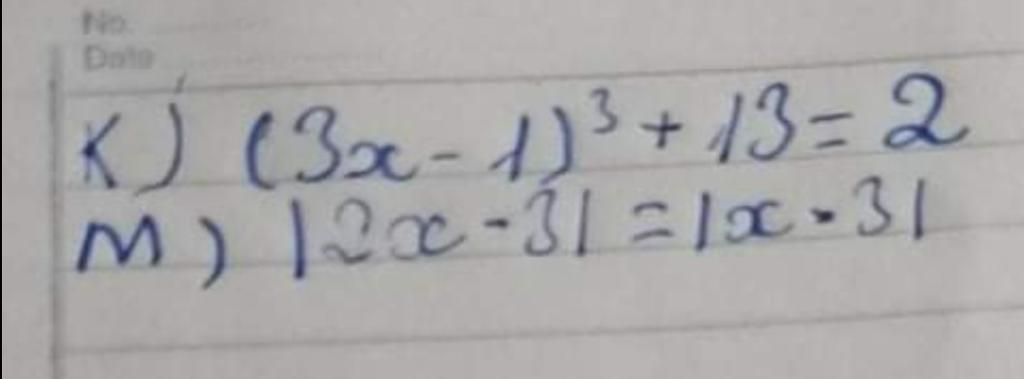 No.
Date
K) (3x - 1)³ + 13 = 2
M) |2x - 3| = |x - 3|